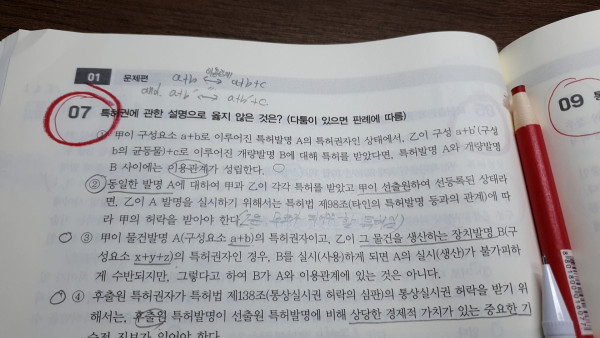 01 문제편 a+b ↔ a+b+c
a+b' a+b'+c
07 특허권에 관한 설명으로 옳지 않은 것은? (다툼이 있으면 판례에 따름)
① 甲이 구성요소 a+b로 이루어진 특허발명 A의 특허권자인 상태에서, 乙이 구성 a+b'(구성
b의 균등물)+c로 이루어진 개량발명 B에 대해 특허를 받았다면, 특허발명 A와 개량발명
B 사이에는 이용관계가 성립한다.
② 동일한 발명 A에 대하여 甲과 乙이 각각 특허를 받았고 甲이 선출원하여 선등록된 상태라
면, 乙이 A 발명을 실시하기 위해서는 특허법 제98조(타인의 특허발명 등과의 관계)에 따
라 甲의 허락을 받아야 한다.
③ 甲이 물건발명 A(구성요소 a+b)의 특허권자이고, 乙이 그 물건을 생산하는 장치발명 B(구
성요소 x+y+z)의 특허권자인 경우, B를 실시(사용)하게 되면 A의 실시(생산)가 불가피하
게 수반되지만, 그렇다고 하여 B가 A와 이용관계에 있는 것은 아니다.
④ 후출원 특허권자가 특허법 제138조(통상실시권 허락의 심판)의 통상실시권 허락을 받기 위
해서는, 후출원 특허발명이 선출원 특허발명에 비해 상당한 경제적 가치가 있는 중요한 기
술적 진보가 있어야 한다.
09